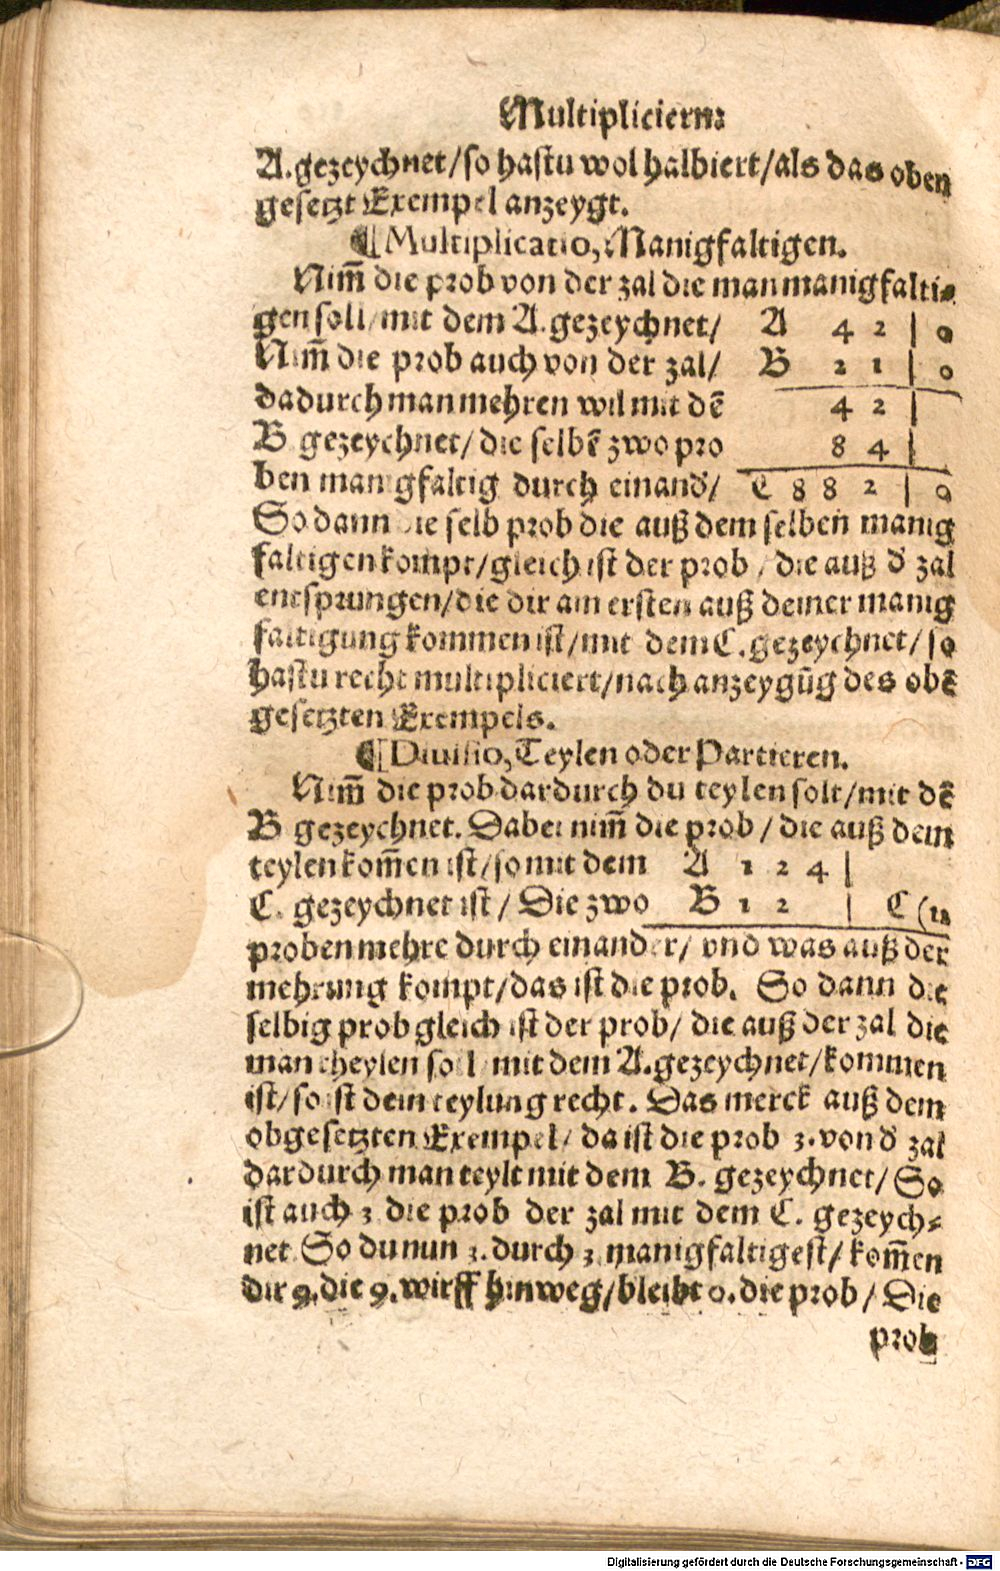 Multipliciern:
A. gezeychnet/so hastu wol halbiert/als das oben
gesetzt Exempel anzeygt.
¶Multiplicatio, Manigfaltigen.
Nim̄ die prob von der zal die man manigfalti⸗
gen soll/mit dem A. gezeychnet/ A 4 2 | 0
Nim̄ die prob auch von der zal/ B 2 1 | 0
dadurch man mehren wil mit dē 4 2 |
B gezeychnet/die selbē zwo pro 8 4 |
ben manigfaltig durch einand'/ C 8 8 2 | 0
So dann die selb prob die auß dem selben manig
faltigen kompt/gleich ist der prob/die auß d' zal
entsprungen/die dir am ersten auß deiner manig
faltigung kommen ist/mit dem C. gezeychnet/so
hastu recht multipliciert/nach anzeygūg des obē
gesetzten Exempels.
¶Diuisio, Teylen oder Partieren.
Nim̄ die prob dardurch du teylen solt/mit dē
B gezeychnet. Dabei nim̄ die prob/die auß dem
teylen kom̄en ist/so mit dem A 1 2 4 |
C. gezeychnet ist/Die zwo B 1 2 | C (12
proben mehre durch einander/vnd was auß der
mehrung kompt/das ist die prob. So dann die
selbig prob gleich ist der prob/die auß der zal die
man theylen soll/mit dem A. gezeychnet/kommen
ist/so ist dein teylung recht. Das merck auß dem
obgesetzten Exempel/da ist die prob 3. von d' zal
dardurch man teylt mit dem B. gezeychnet/So
ist auch 3 die prob der zal mit dem C. gezeych⸗
net So du nun 3. durch 3 manigfaltigest/kom̄en
dir 9. die 9. wirff hinweg/bleibt 0. die prob/Die
prob
Digitalisierung gefördert durch die Deutsche Forschungsgemeinschaft - DFG